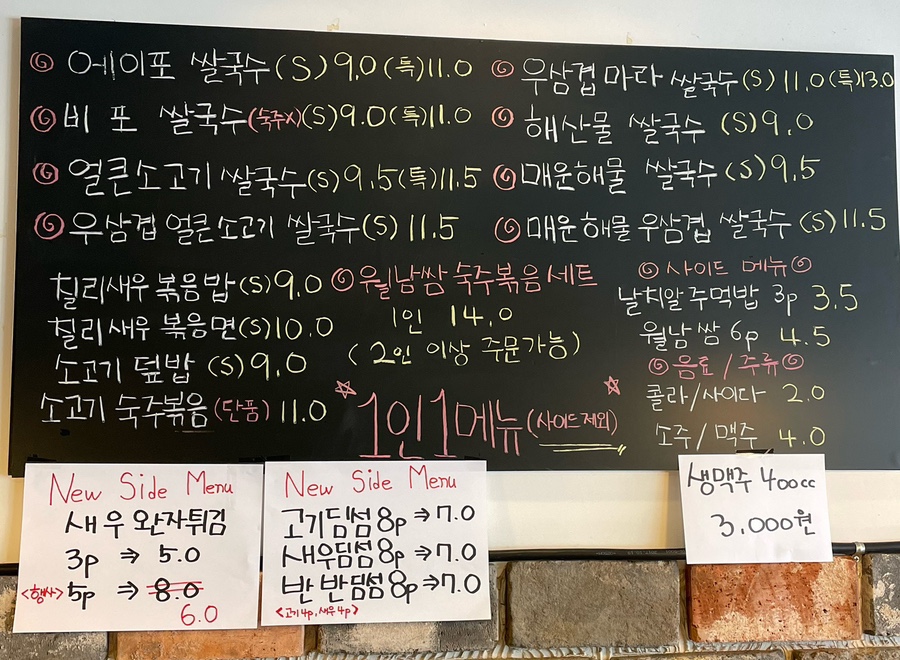 에이포 쌀국수 (S) 9.0 (특) 11.0
비 포 쌀국수 (숙주X) (S) 9.0 (특) 11.0
얼큰소고기 쌀국수 (S) 9.5 (특) 11.5
우삼겹 얼큰소고기 쌀국수 (S) 11.5
우삼겹마라 쌀국수 (S) 11.0 (특) 13.0
해산물 쌀국수 (S) 9.0
매운해물 쌀국수 (S) 9.5
매운해물우삼겹 쌀국수 (S) 11.5
칠리새우 볶음밥 (S) 9.0
칠리새우 볶음면 (S) 10.0
소고기 덮밥 (S) 9.0
소고기 숙주볶음 (단품) 11.0
월남쌈 숙주볶음 세트
1인 14.0
(2인 이상 주문가능)
1인1메뉴 (사이드제외)
사이드 메뉴
날치알주먹밥 3p 3.5
월남쌈 6p 4.5
음료/주류
콜라/사이다 2.0
소주/맥주 4.0
New Side Menu
새우완자튀김
3p ⇒ 5.0
<행사> 5p ⇒ 8.0
6.0
New Side Menu
고기딤섬 8p ⇒ 7.0
새우딤섬 8p ⇒ 7.0
반반딤섬 8p ⇒ 7.0
<고기4p, 새우4p>
생맥주 400cc
3,000원